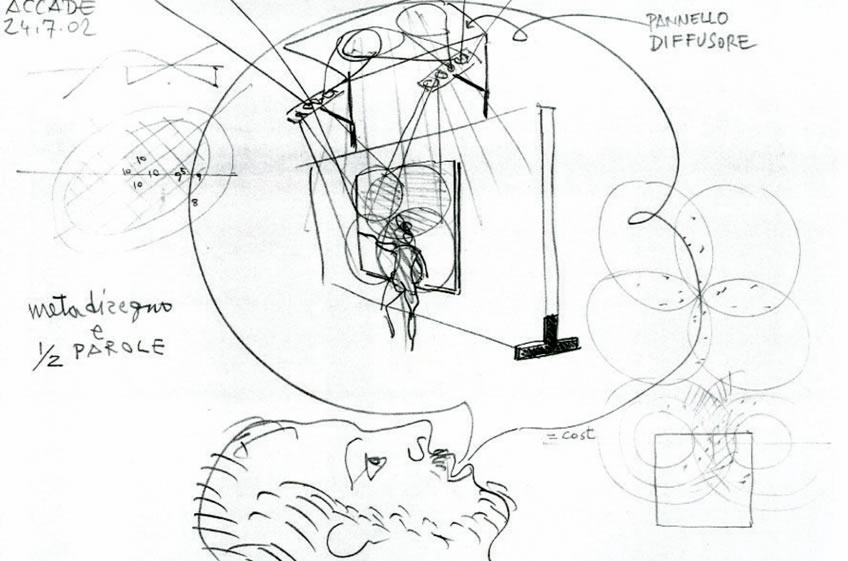 ACCADE
24.7.02
PANNELLO
DIFFUSORE
10
10 10 9.5 9
10
8
metadizegno
e
1/2 PAROLE
= cost